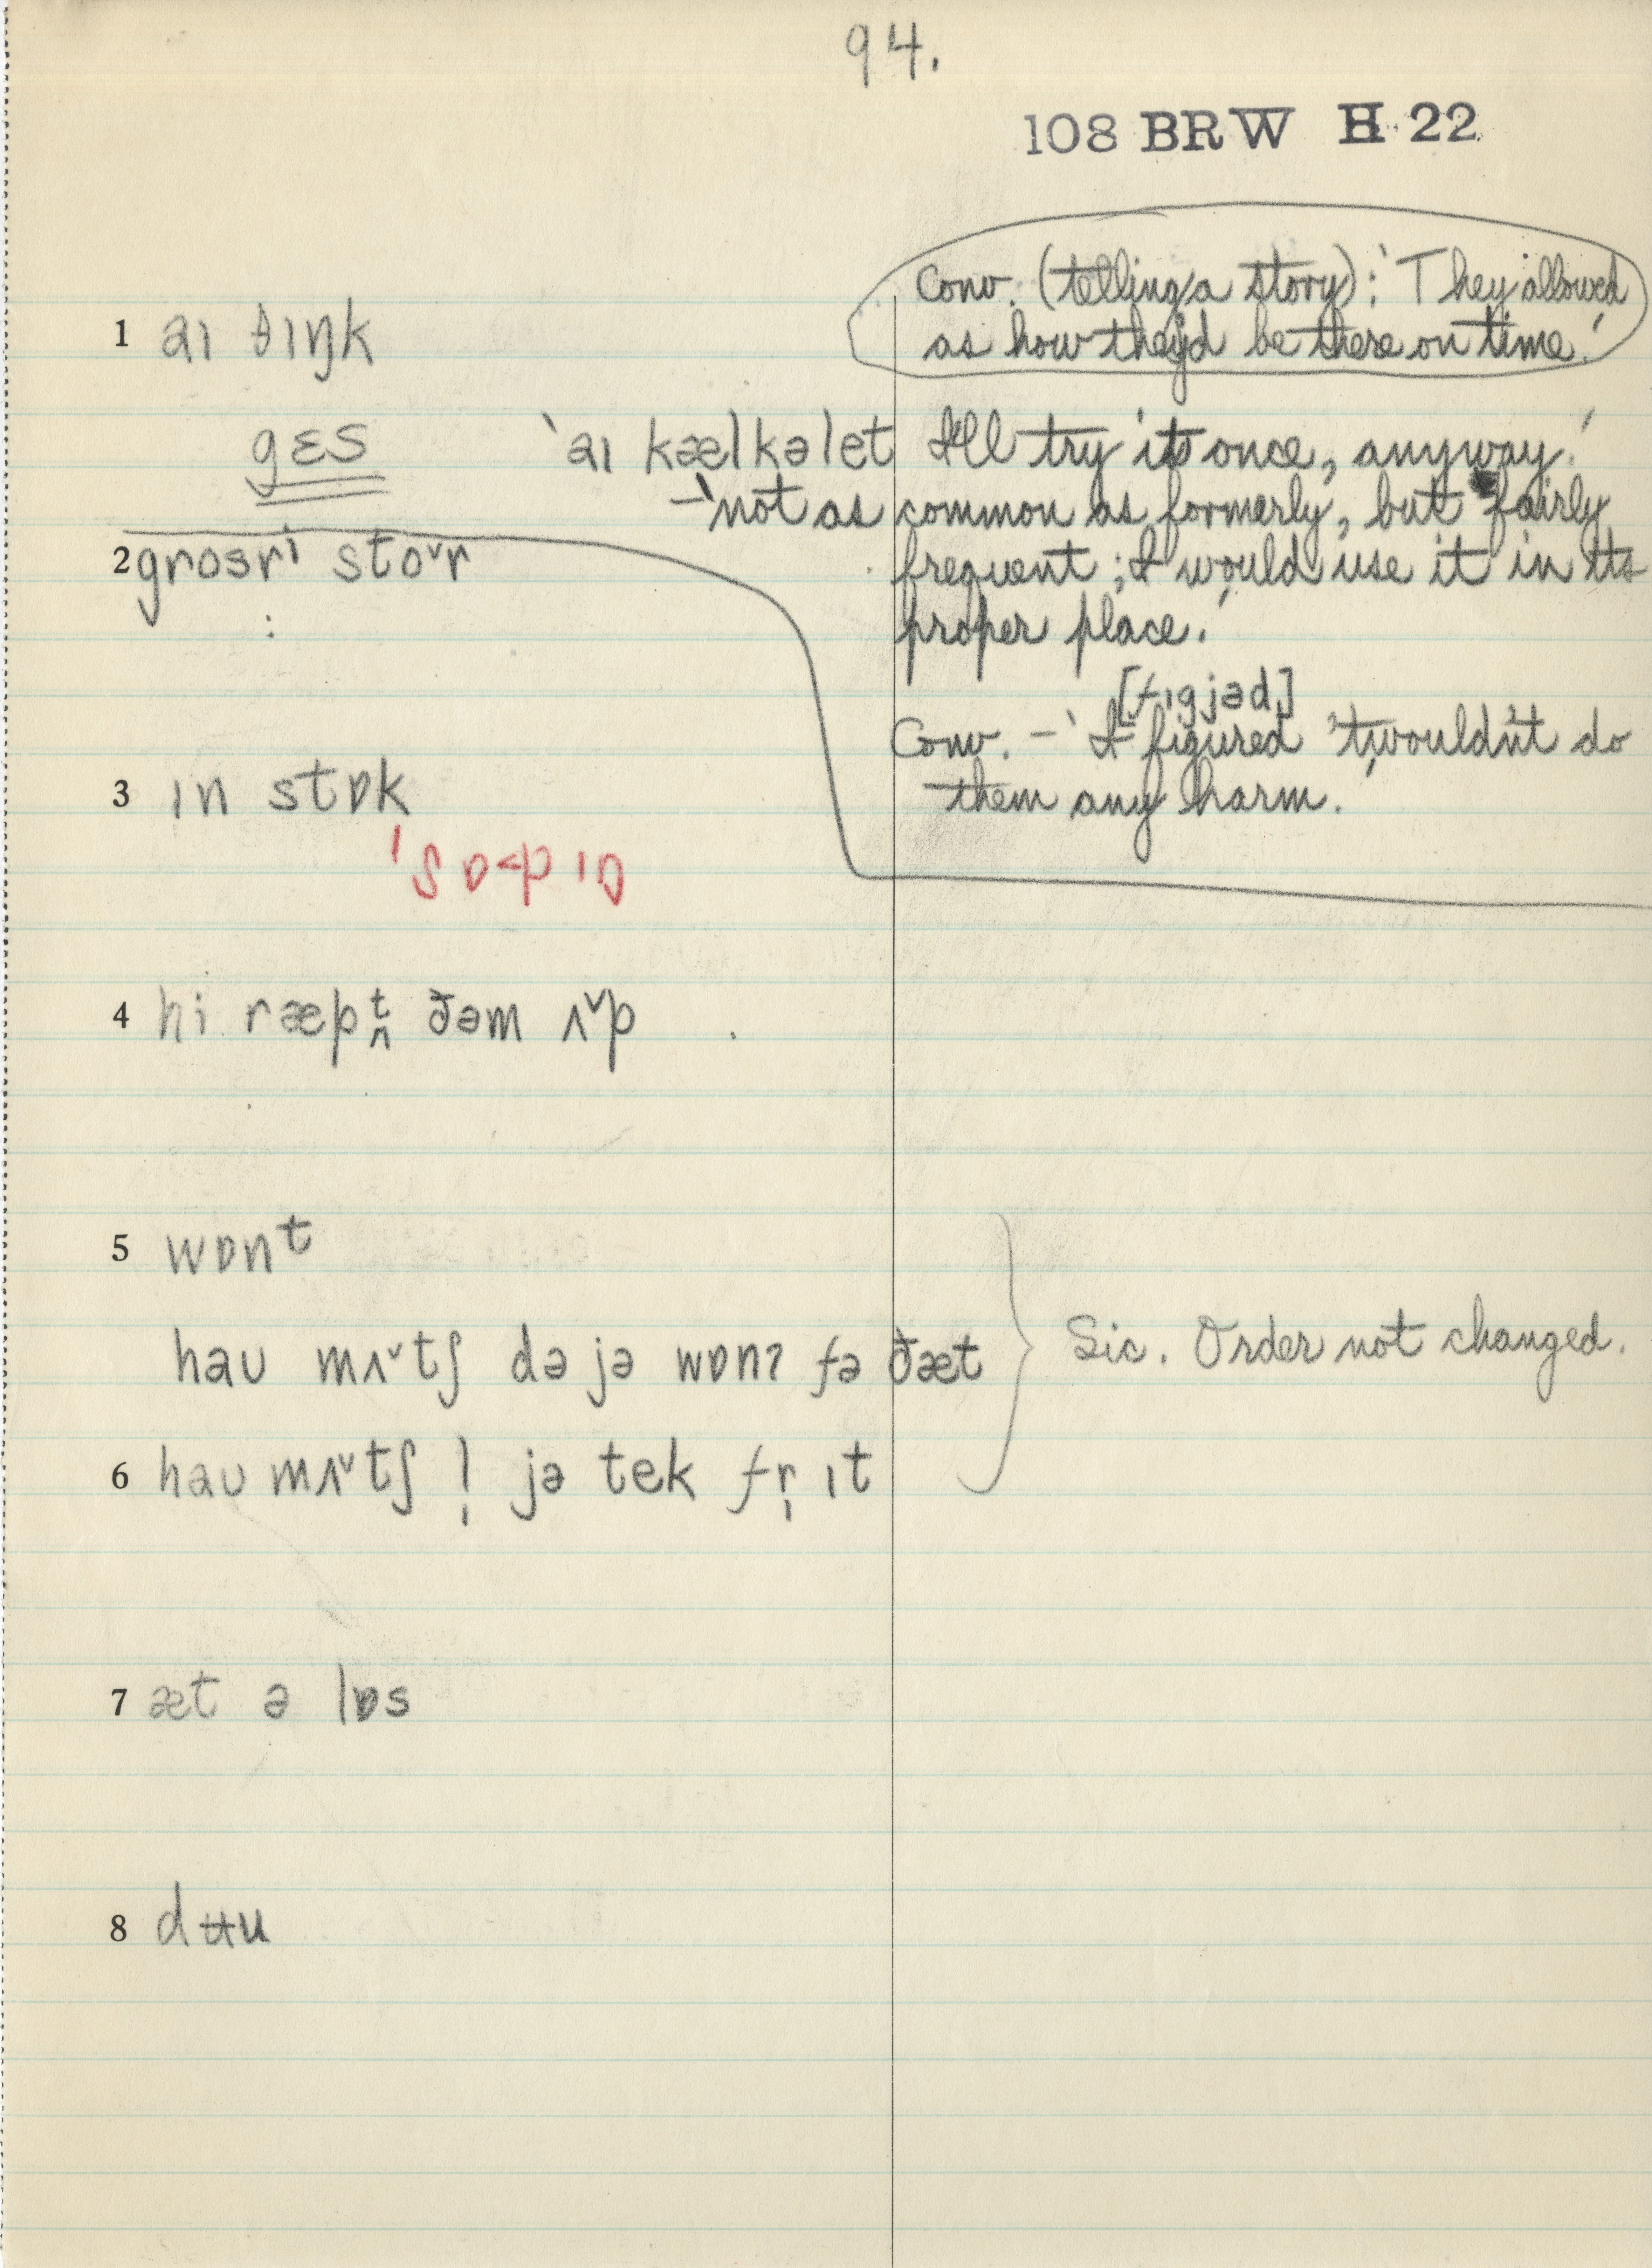 94.
108 BRW H 22
Conv. (telling a story): 'They allowed
as how they'd be there on time.'
1 aɪ θɪŋk
gɛs
'aɪ kælkəlet I'll try it once, anyway.'
– 'not as common as formerly, but fairly
frequent; I would use it in its
proper place.'
2 grosrɪ stoˇr
[fɪgjəd]
Conv. – 'I figured 'twouldn't do
them any harm.
3 ɪn stɒk
4 hi ræpt ðəm ʌˇp
5 wɒnt
haʊ mʌˇtʃ də jə wɒnʔ fə ðæt
Sic. Order not changed.
6 haʊ mʌˇtʃ l̩ jə tek fr̩ ɪt
7 æt ə lɒs
8 dʉu